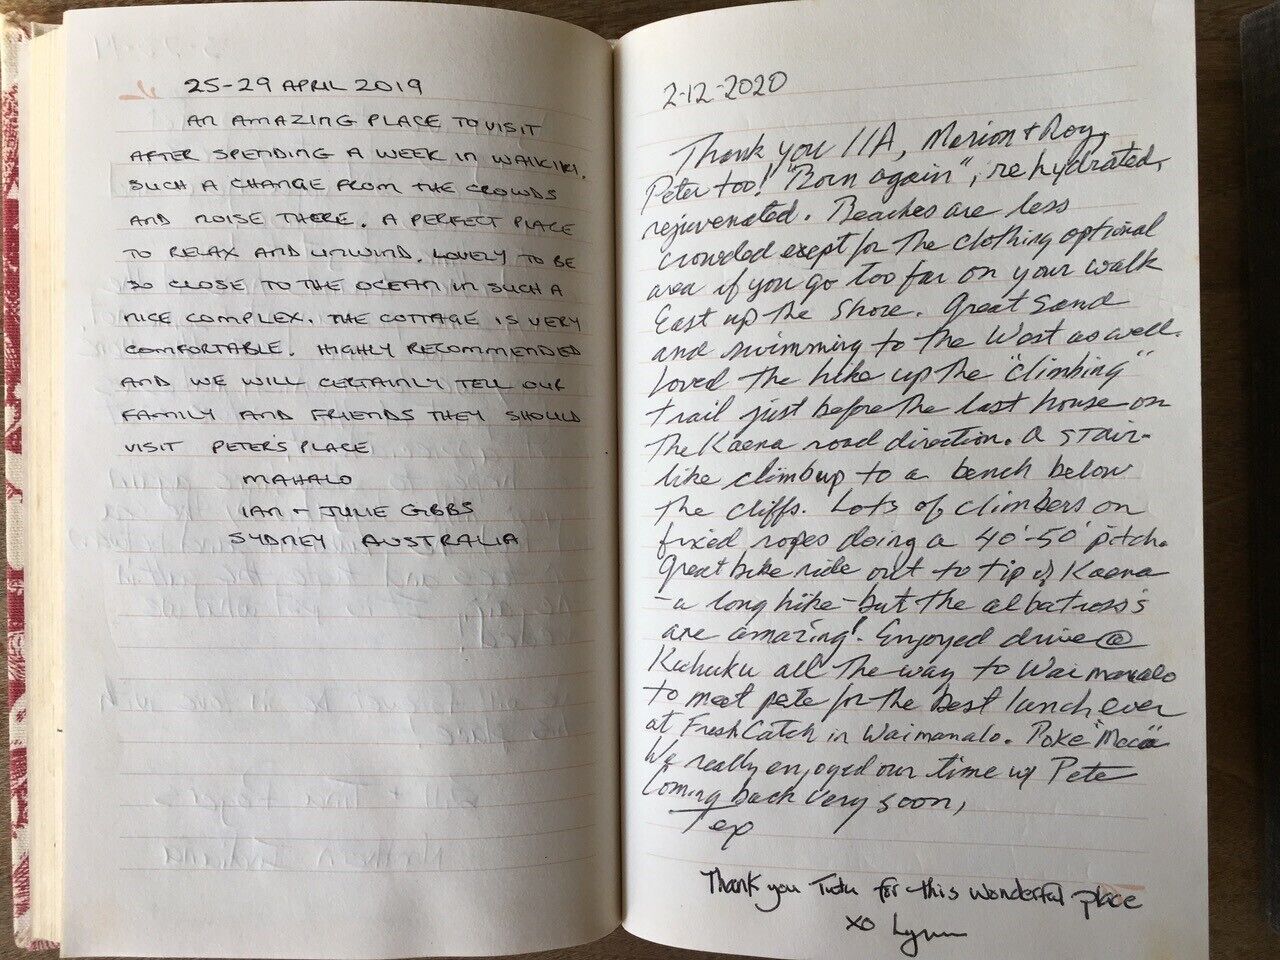 25-29 APRIL 2019
AN AMAZING PLACE TO VISIT
AFTER SPENDING A WEEK IN WAIKIKI.
SUCH A CHANGE FROM THE CROWDS
AND NOISE THERE. A PERFECT PLACE
TO RELAX AND UNWIND. LOVELY TO BE
SO CLOSE TO THE OCEAN IN SUCH A
NICE COMPLEX. THE COTTAGE IS VERY
COMFORTABLE. HIGHLY RECOMMENDED
AND WE WILL CERTAINLY TELL OUR
FAMILY AND FRIENDS THEY SHOULD
VISIT PETER'S PLACE
MAHALO
IAN + JULIE GIBBS
SYDNEY AUSTRALIA
2-12-2020
Thank you 11A, Marion + Roy,
Peter too! "Born again", re hydrated,
rejuvenated. Beaches are less
crowded exept for the clothing optional
area if you go too far on your walk
East up the shore. Great sand
and swimming to the West as well.
Loved the hike up the "climbing"
trail just before the last house on
the Kaena road direction. A stair-
like climb up to a bench below
the cliffs. Lots of climbers on
fixed ropes doing a 40'-50' pitch.
Great bike ride out to tip of Kaena
- a long hike - but the albatross's
are amazing! Enjoyed drive @
Kuhuku all the way to Waimanalo
to meet pete for the best lunch ever
at Fresh Catch in Waimanalo. Poke
We really enjoyed our time w/ Pete
Coming back very soon,
Tex
Thank you Tutu for this wonderful place
xo Lynn